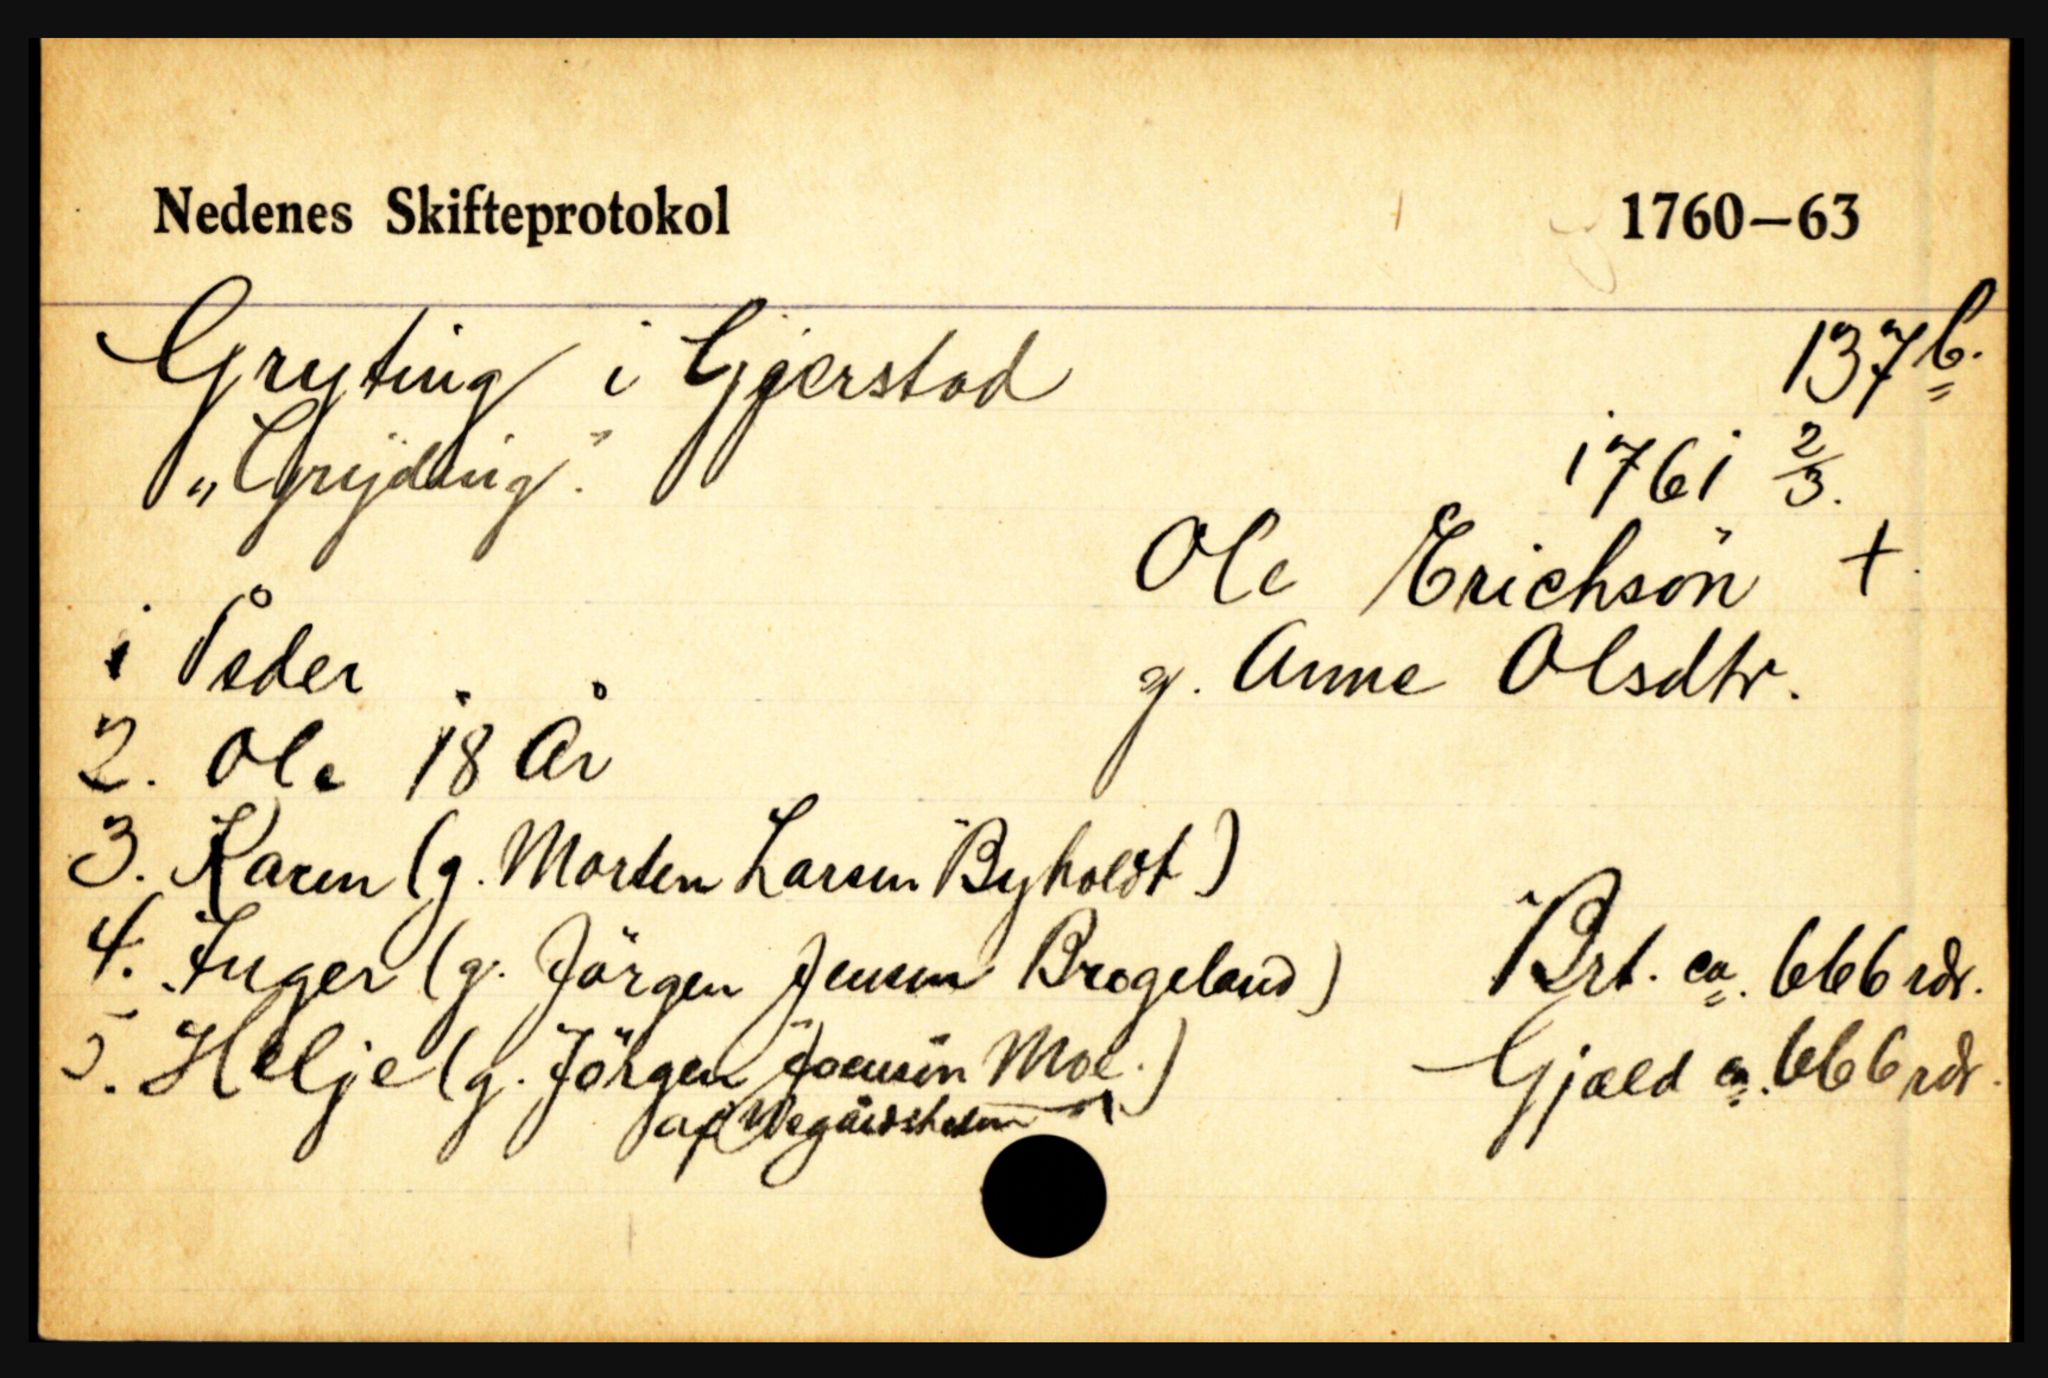 Nedenes Skifteprotokol 1760—63
Gryting i Gjerstad 137 b.
„Grÿding". 1761 2/3.
Ole Erichsön +.
1 Peder g. Anne Olsdtr.
2. Ole 18 År
3. Karen (g. Morten Larsen Byholdt)
4. Inger (g. Jörgen Jensen Brogeland) Brt. ca. 666 rdr.
5. Helje (g. Jörgen Joensön Moe.) Gjæld ca. 666 rdr.
af Wegårdsheien